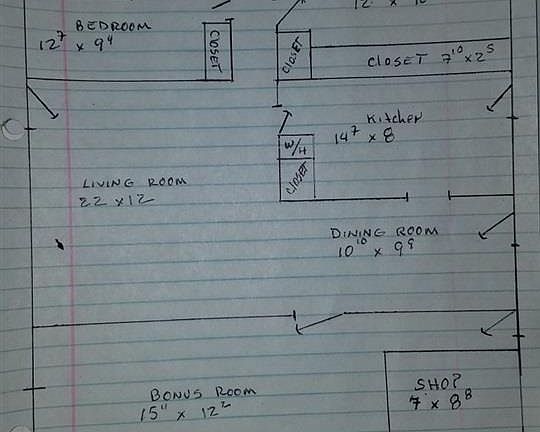 BEDROOM
12⁷ x 9⁴
CLOSET
CLOSET
CLOSET 7¹⁰ x 2⁵
Kitchen
14⁷ x 8
W/H
CLOSET
LIVING ROOM
22 x 12
DINING ROOM
10¹⁰ x 9⁹
BONUS ROOM
15" x 12²
SHOP
7 x 8⁸